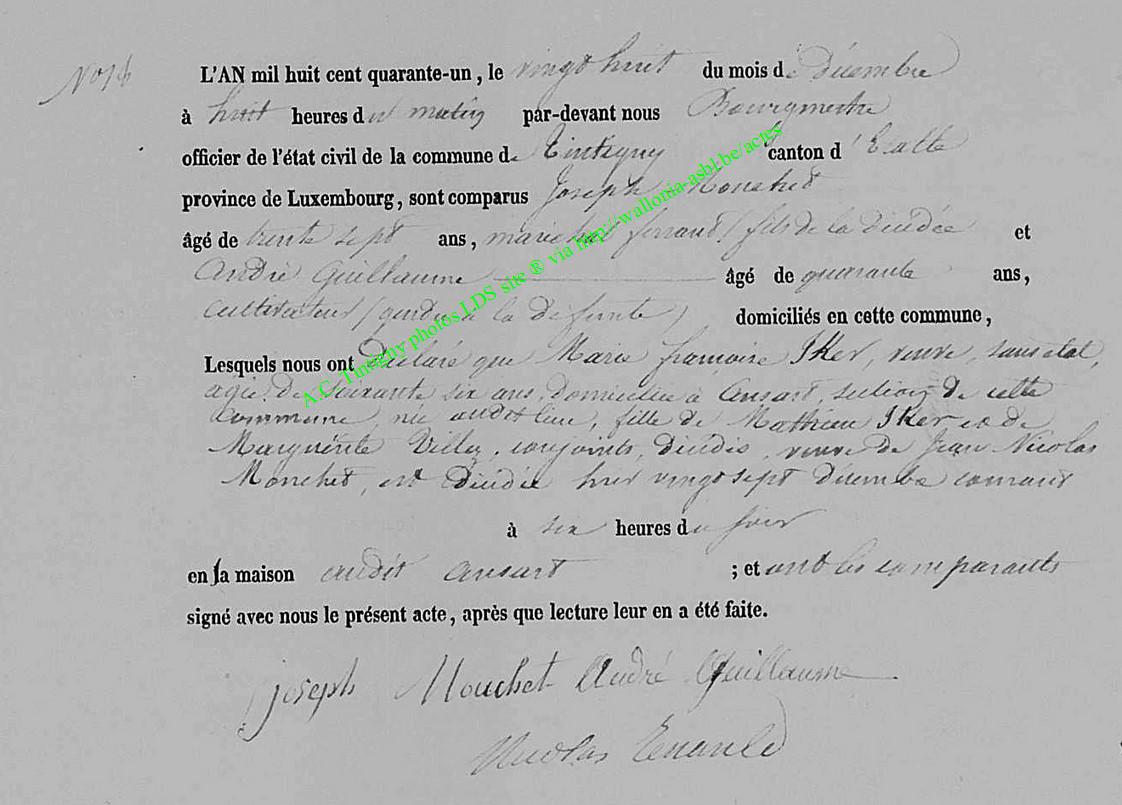 L'AN mil huit cent quarante-un, le vingt huit du mois de décembre
à huit heures du matin par-devant nous Bourgmestre
officier de l'état civil de la commune de Tintigny canton d'Etalle
province de Luxembourg, sont comparus Joseph Mouchet
âgé de trente sept ans, maréchal ferrant (fils de la décédée et
André Guillaume âgé de quarante ans,
cultivateur (gendre à la défunte) domiciliés en cette commune,
Lesquels nous ont déclaré que Marie françoise Iker, veuve, sans état,
agée de soixante six ans, domiciliée à Ansart, section de cette
Commune, née audit lieu, fille de Mathieu Iker et de
Marguerite conjoints, décédés, veuve de Jean Nicolas
Mouchet, est décédée hier vingt sept décembre courant
à six heures du soir
en sa maison audit ansart ; et ont les comparants
signé avec nous le présent acte, après que lecture leur en a été faite.
joseph Mouchet André Guillaume
Nicolas
A.C. Tintigny photos LDS site ® via http://wallonia-asbl.be/actes